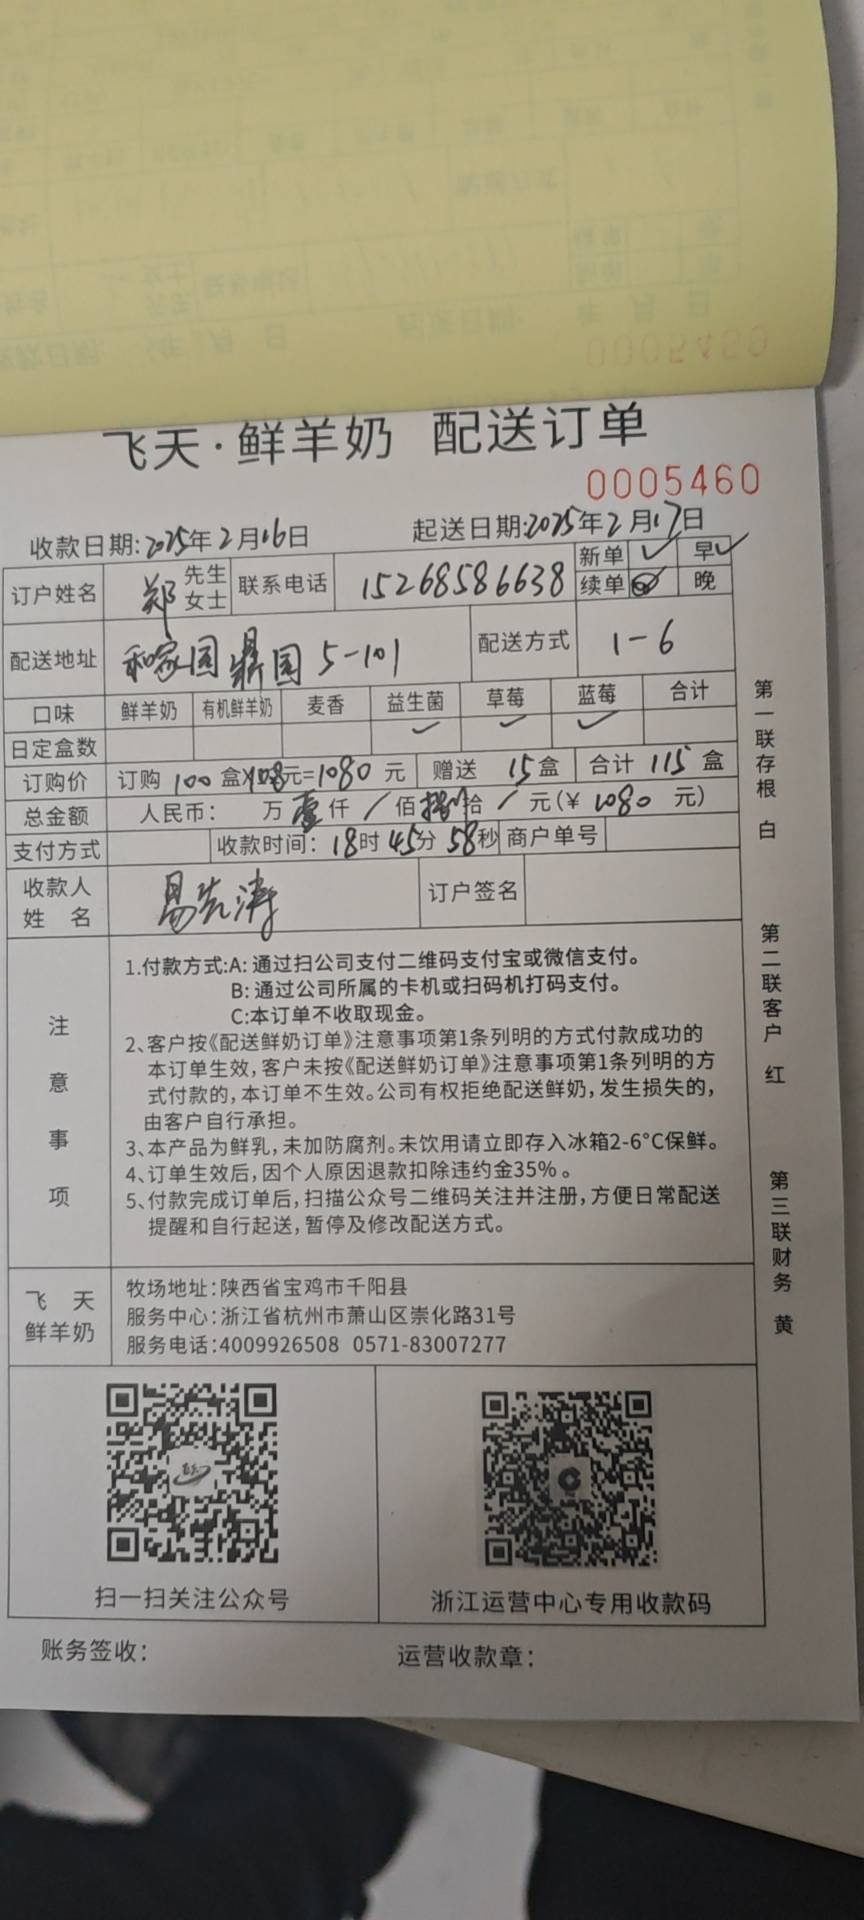 0005459
飞天·鲜羊奶 配送订单
0005460
收款日期:2025年2月16日 起送日期:2025年2月17日
订户姓名 郑 先生 女士 联系电话 15268586638 新单 ✓ 早 ✓
续单 晚
配送地址 和家园鼎园5-101 配送方式 1-6
口味 鲜羊奶 有机鲜羊奶 麦香 益生菌 草莓 蓝莓 合计
日定盒数 ✓ ✓ ✓
订购价 订购 100 盒×10.8元=1080 元 赠送 15盒 合计 115 盒
总金额 人民币: 万 壹仟 / 佰 捌拾 / 元(¥ 1080 元)
支付方式 收款时间:18时45分58秒 商户单号
收款人姓名 易先涛 订户签名
注意事项
1.付款方式:A:通过扫公司支付二维码支付宝或微信支付。
B:通过公司所属的卡机或扫码机打码支付。
C:本订单不收取现金。
2、客户按《配送鲜奶订单》注意事项第1条列明的方式付款成功的
本订单生效,客户未按《配送鲜奶订单》注意事项第1条列明的方
式付款的,本订单不生效。公司有权拒绝配送鲜奶,发生损失的,
由客户自行承担。
3、本产品为鲜乳,未加防腐剂。未饮用请立即存入冰箱2-6°C保鲜。
4、订单生效后,因个人原因退款扣除违约金35%。
5、付款完成订单后,扫描公众号二维码关注并注册,方便日常配送
提醒和自行起送,暂停及修改配送方式。
飞天鲜羊奶
牧场地址:陕西省宝鸡市千阳县
服务中心:浙江省杭州市萧山区崇化路31号
服务电话:4009926508 0571-83007277
扫一扫关注公众号 浙江运营中心专用收款码
账务签收: 运营收款章:
第一联存根 白
第二联客户 红
第三联财务 黄